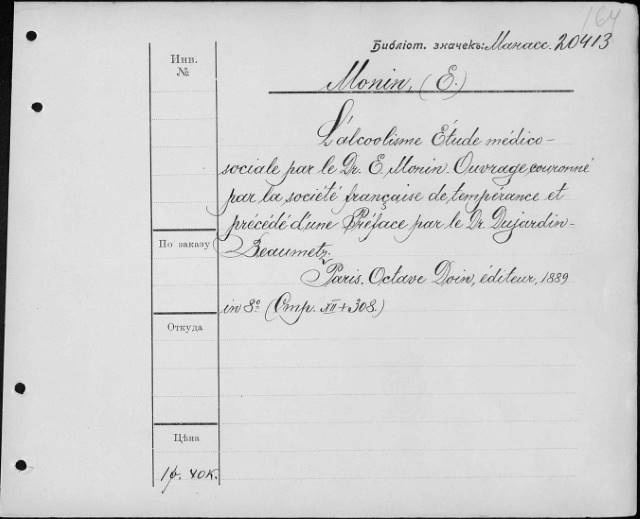 164
Библіот. значекъ: Манасс. 20413
Инв.
№
Monin, (E.)
L'alcoolisme Étude médico-
sociale par le Dr. E. Monin. Ouvrage couronné
par la société française de tempérance et
précédé d'une Préface par le Dr. Dujardin-
По заказу
Beaumetz.
Paris. Octave Doin, éditeur, 1889
in 8º (Стр. XII+308.)
Откуда
Цѣна
1 р. 40 к.